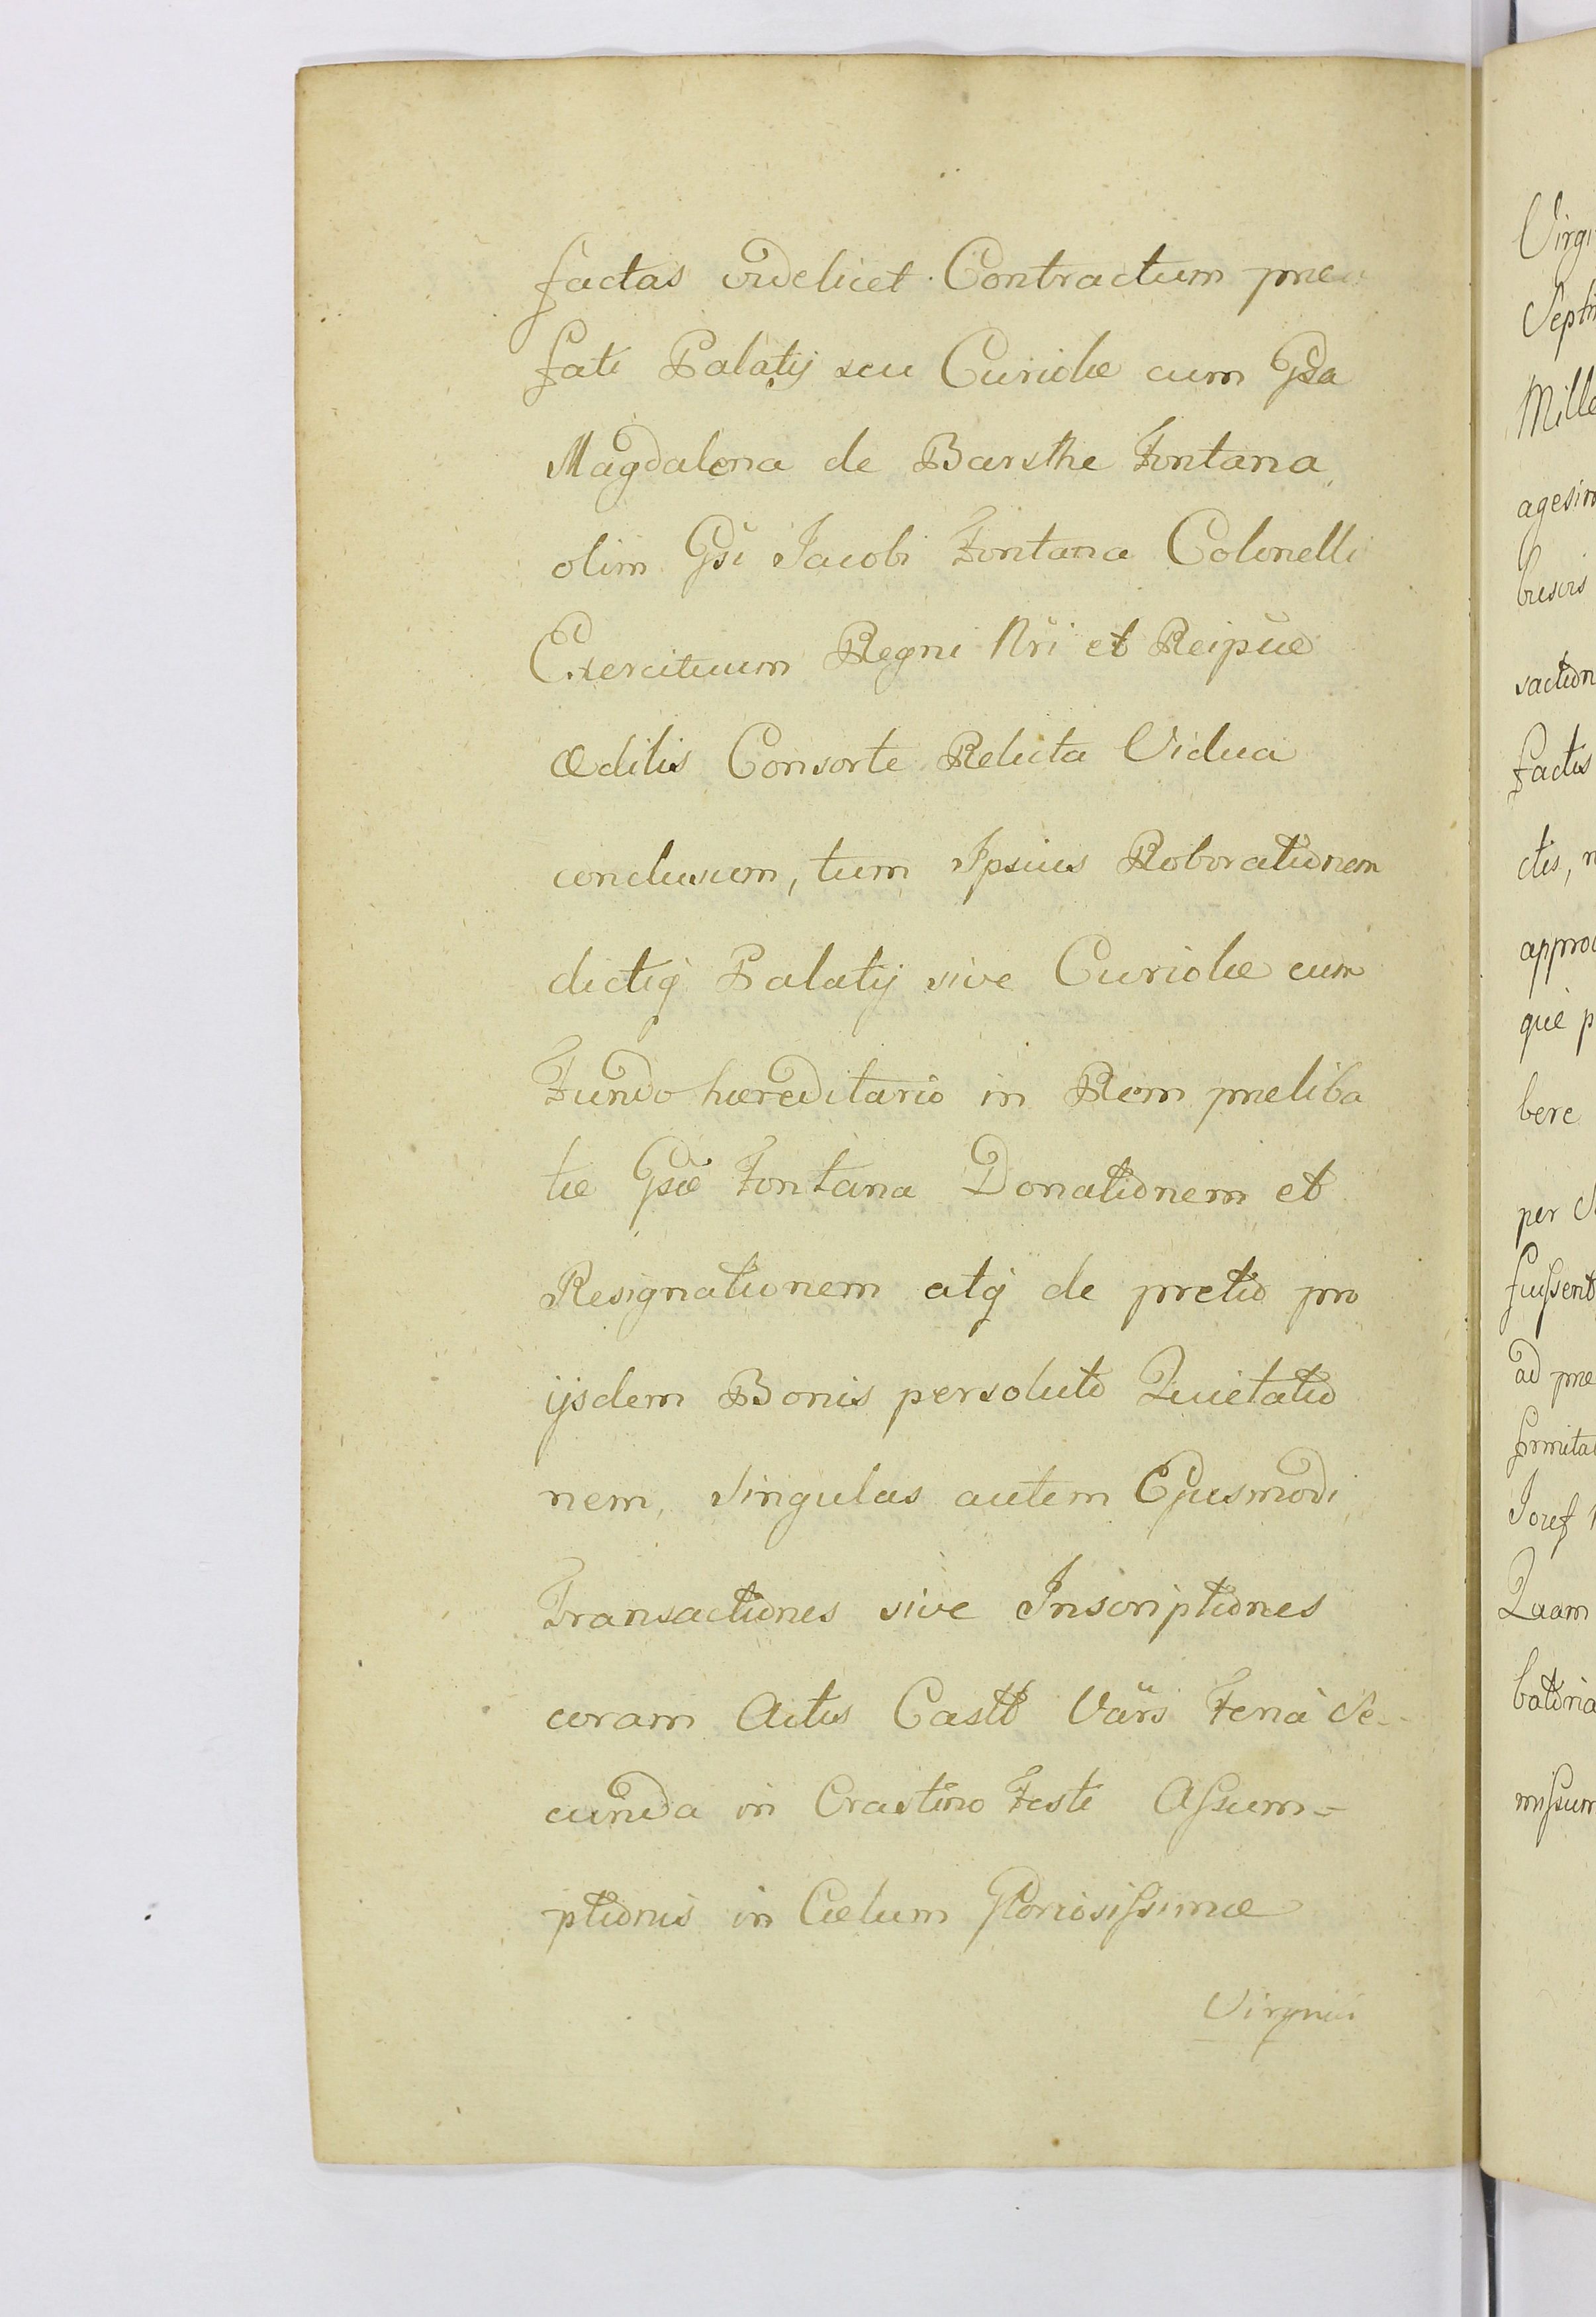 factas videlicet Contractum præ
fati Palatij seu Curiolæ cum Gsa
Magdalena de Barsthe Fontana,
olim Gsi Jacobi Fontana Colonelli
Exercituum Regni Nri et Reipuæ
Ædilis Consorte Relicta Vidua
conclusum, tum Ipsius Roborationem
dictiq Palatij sive Curiolæ cum
Fundo hæreditario in Rem præliba
tæ Gsæ Fontana Donationem et
Resignationem atq de pretio pro
ijsdem Bonis persoluto Quietatio
nem, Singulas autem Ejusmodi
Transactiones sive Inscriptiones
coram Actis Castr Vars Feria Se-
cunda in Crastino Festi Assum=
ptionis in Cælum Gloriosissimæ
Virginis
Virgi
Septi
Mille
agesim
busvis
saction
factis
ctis, n
appro
que p
bere
per S
fuissent
ad præ
firmita
Jozef
Quam
bationa
missum